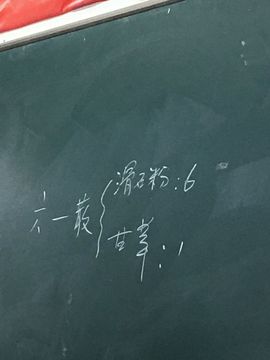 六一散
滑石粉:6
甘草:1